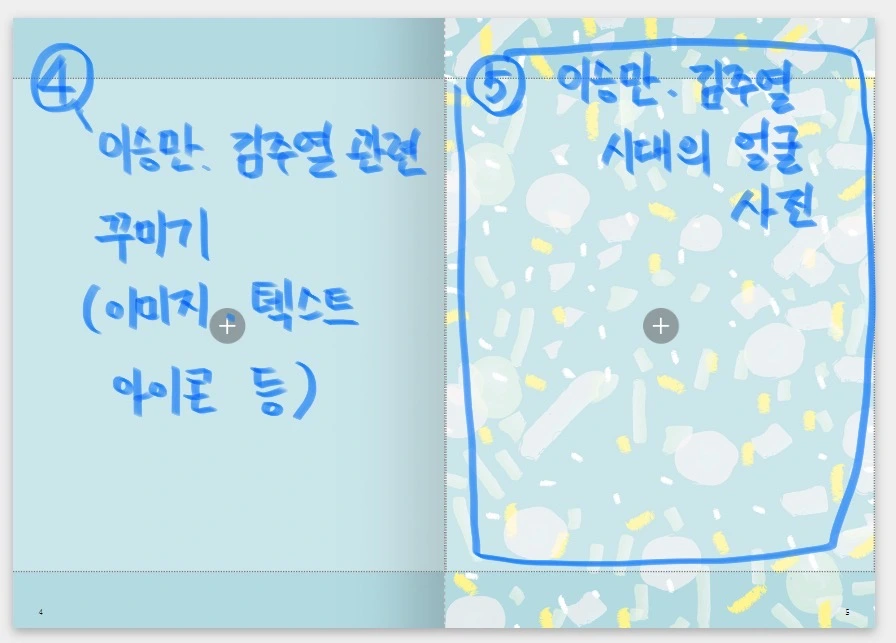 ④
이승만. 김주열 관련
꾸미기
(이미지. 텍스트
아이콘 등)
4
⑤ 이승만. 김주열
시대의 얼굴
사진
5